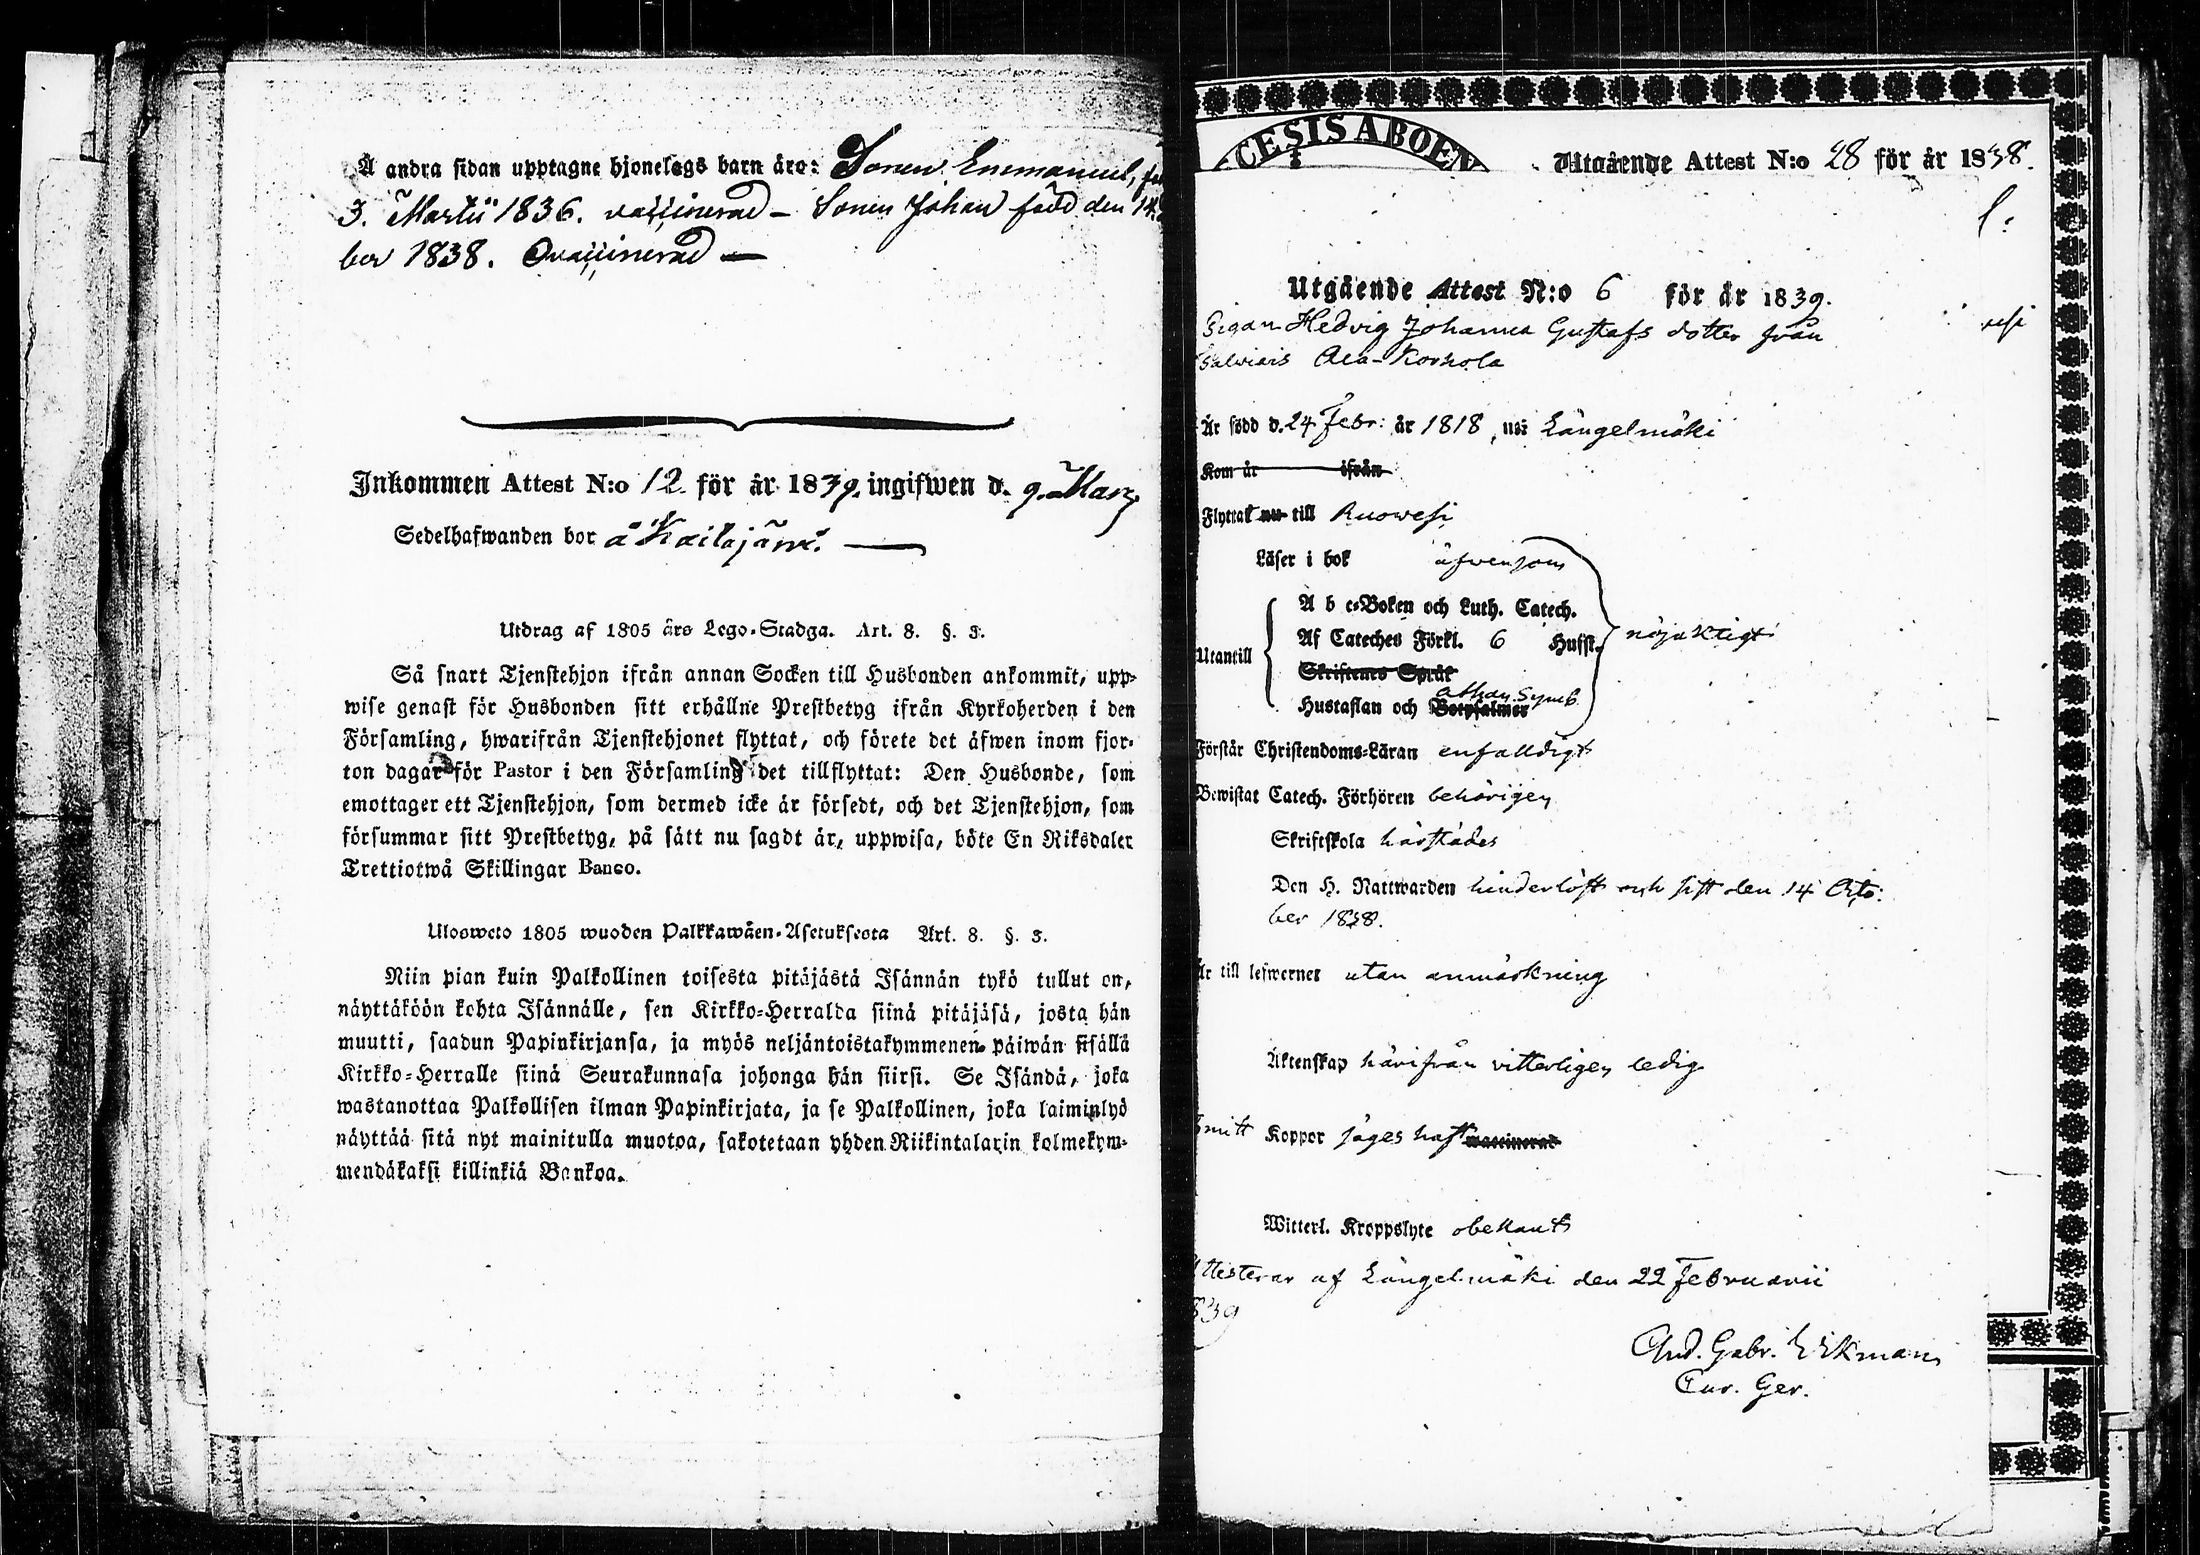 Å andra sidan upptagne hjonelags barn äro: Sonen Emmanuel,
3. Martii 1836. vaccinerad – Sonen Johan född den 14.
ber 1838. Ovaccinerad —
Inkommen Attest N:o 12. för år 1839. ingifwen d. 9. Marz
Sedelhafwanden bor å Kaitajärvi. —
Utdrag af 1805 års Lego-Stadga. Art. 8. §. 3.
Så snart Tjenstehjon ifrån annan Socken till Husbonden ankommit, upp-
wise genast för Husbonden sitt erhållne Prestbetyg ifrån Kyrkoherden i den
Församling, hwarifrån Tjenstehjonet flyttat, och förete det äfwen inom fjor-
ton dagar för Pastor i den Församling det tillflyttat: Den Husbonde, som
emottager ett Tjenstehjon, som dermed icke är försedt, och det Tjenstehjon, som
försummar sitt Prestbetyg, på sätt nu sagdt är, uppwisa, böte En Riksdaler
Trettiotwå Skillingar Banco.
Ulosweto 1805 wuoden Palkkawäen-Asetuksesta Art. 8. §. 3.
Niin pian kuin Palkollinen toisesta pitäjästä Isännän tykö tullut on,
näyttäköön kohta Isännälle, sen Kirkko-Herralda siinä pitäjäsä, josta hän
muutti, saadun Papinkirjansa, ja myös neljäntoistakymmenen päiwän sisällä
Kirkko-Herralle siinä Seurakunnasa johonga hän siirsi. Se Isändä, joka
wastanottaa Palkollisen ilman Papinkirjata, ja se Palkollinen, joka laiminlyö
näyttää sitä nyt mainitulla muotoa, sakotetaan yhden Riikintalarin kolmekym-
mendäkaksi killinkiä Bankoa.
CESIS ABOEN
Utgående Attest N:o 28 för år 1838.
Utgående Attest N:o 6 för år 1839.
Pigan Hedvig Johanna Gustafs dotter från
Ala-Korkola
Är född d. 24 Febr: år 1818, uti Längelmäki
Kom år ifrån
Flyttat nu till Ruowesi
Läser i bok äfwensom
A b c-Boken och Luth. Catech.
Af Cateches Förkl. 6 Hufst. nöjaktigt
Utantill
Skriftenes Språk
Athan. Symb.
Hustaflan och Botpsalmer
Förstår Christendoms-Läran enfaldigt
Bewistat Catech. Förhören behörigen
Skriftskola härstädes
Den H. Nattwarden hinderlöst och sist den 14 Octo:
ber 1838.
Är till lefwernet utan anmärkning
Äktenskap härifrån vitterligen ledig
Koppor säges haft vaccinerad
Witterl. Kroppslyte obekant
Attesterar af Längelmäki den 22 Februarii
1839
And. Gabr. Ekman
Cur. Ger.